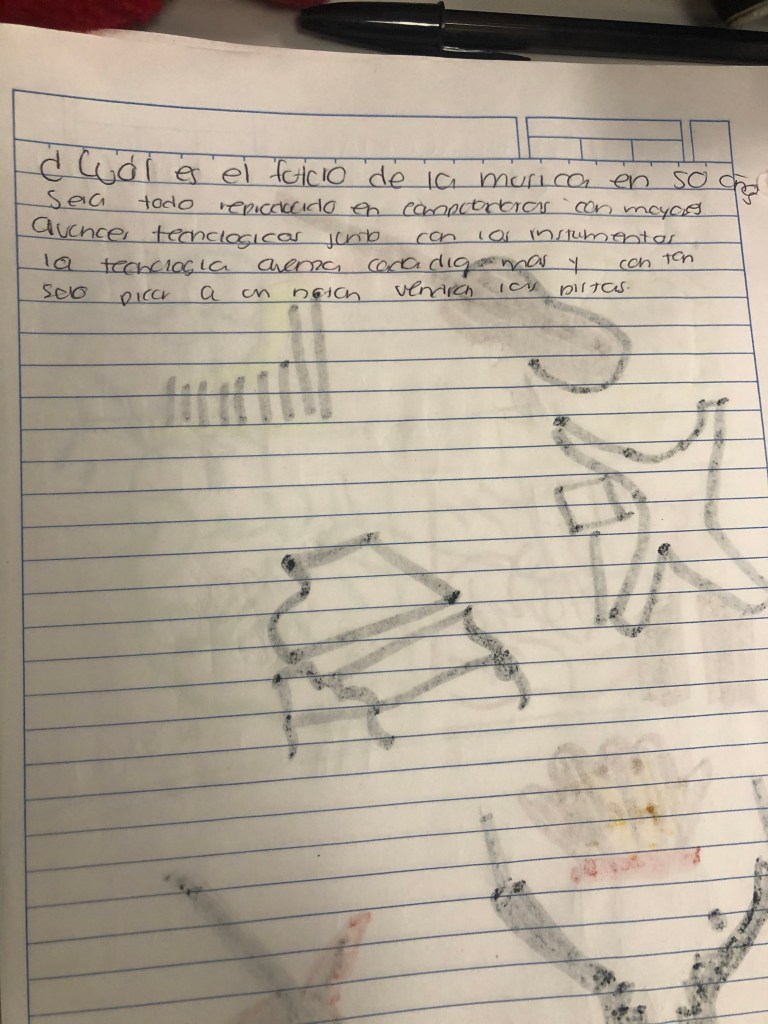 ¿Cuál es el futcio de la musica en 50 años
Sera todo reproducido en computadoras con mayores
avances tecnologicos junto con los instumentos
la tecnologia avenza cada dia mas y con tan
solo picar a un boton vendran las pistas.